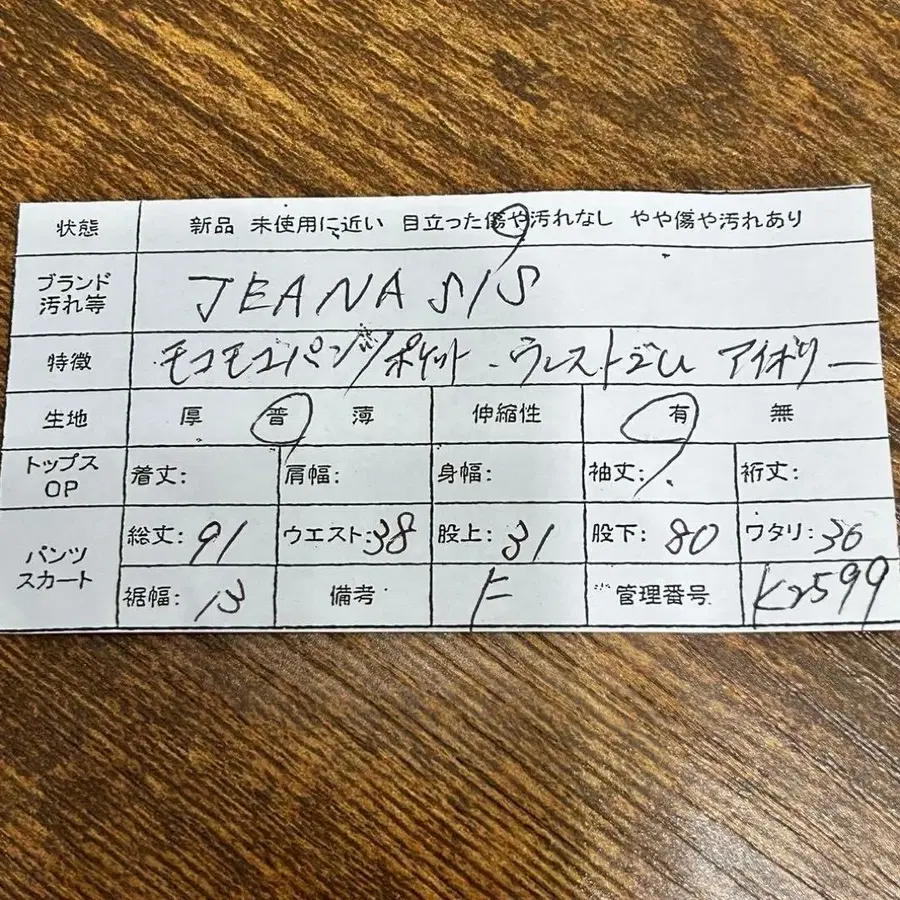 状態 新品 未使用に近い 目立った傷や汚れなし やや傷や汚れあり
ブランド
汚れ等 JEANASIS
特徴 モコモコパンツ ポケット ウエストゴム アイボリー
生地 厚 普 薄 伸縮性 有 無
トップス
OP 着丈: 肩幅: 身幅: 袖丈: 裄丈:
パンツ
スカート 総丈: 91 ウエスト: 38 股上: 31 股下: 80 ワタリ: 36
裾幅: 13 備考 F 管理番号 K2599